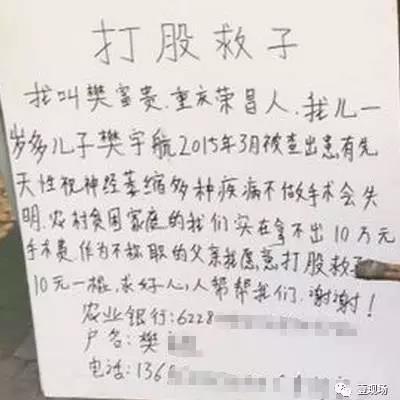 打股救子
我叫樊富贵.重庆荣昌人.我儿一
岁多儿子樊宇航2015年3月被查出患有先
天性视神经萎缩多种疾病不做手术会失
明.农村贫困家庭的我们实在拿不出10万元
手术费.作为不称职的父亲我愿意打股救子
10元一棍.求好心人帮帮我们.谢谢!
农业银行:6228
户名:樊
电话:136
壹现场